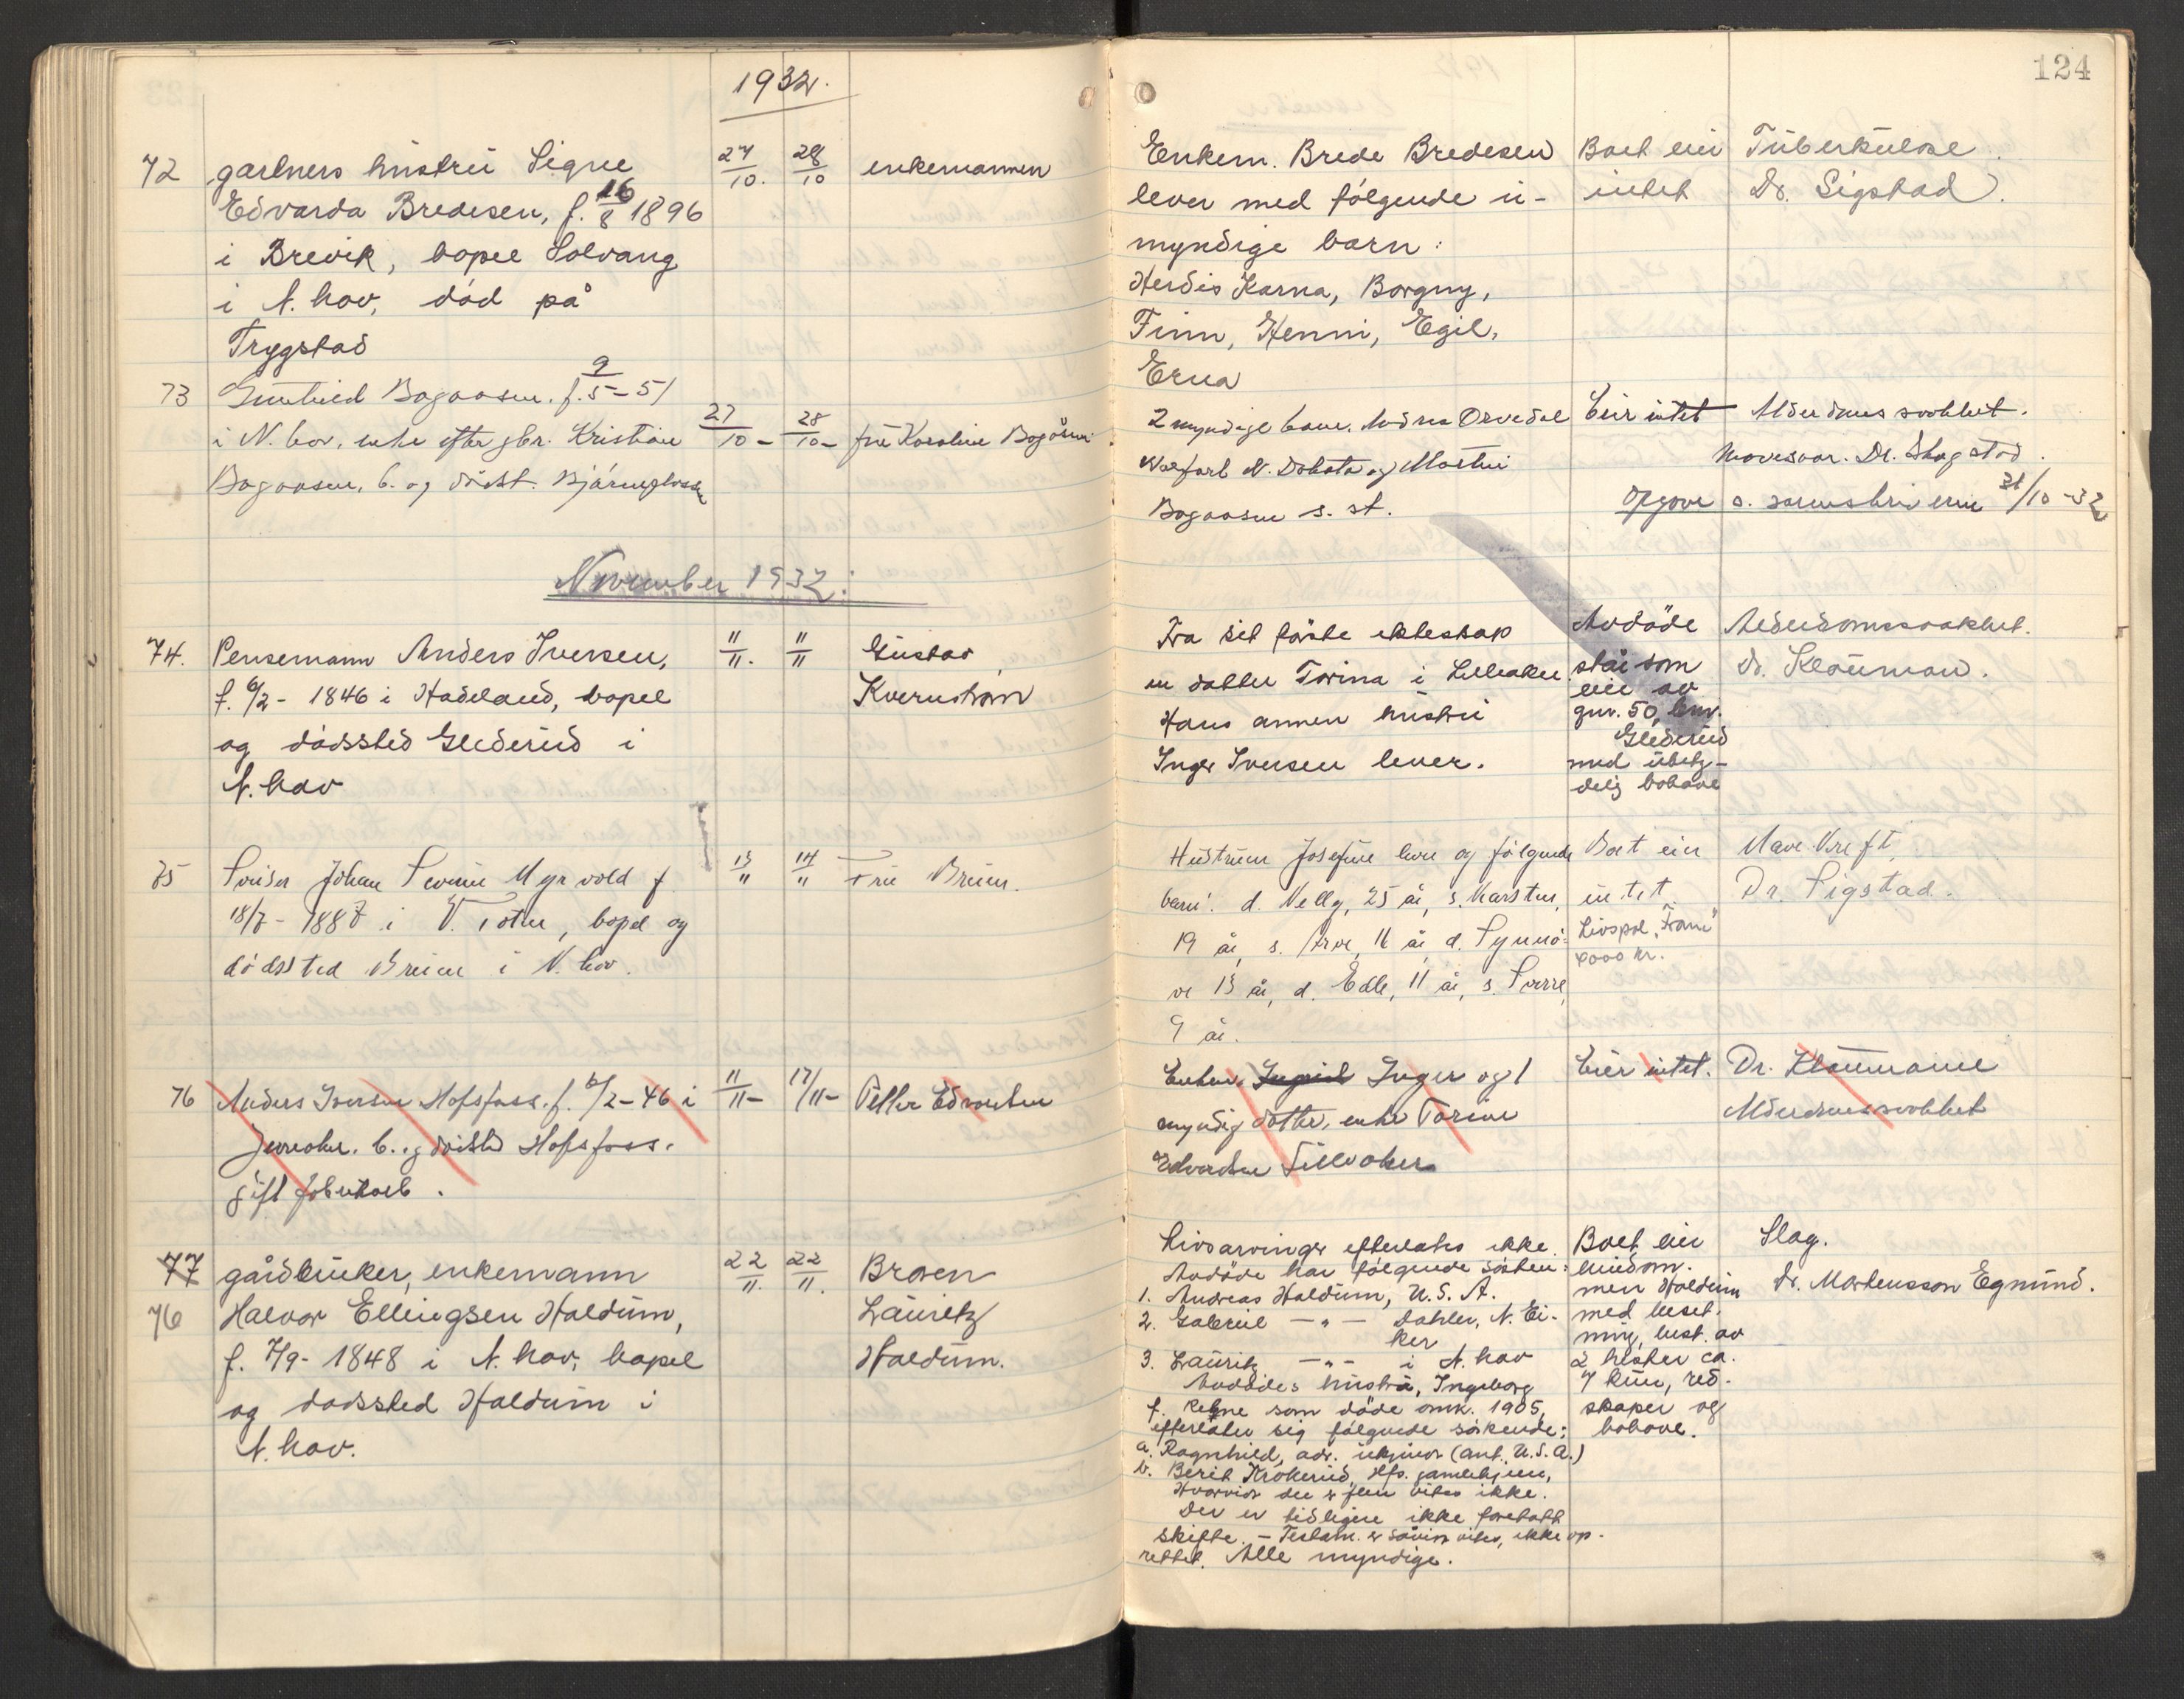 1932.
124
72 gartners hustru Signe 27/10. 28/10 enkemannen
Edvarda Bredesen, f. 16/8 1896
i Brevik, bopel Solvang
i N. hov, död på
Trygstad
Enkem. Brede Bredesen
lever med følgende u-
myndige barn:
Herdis Karna, Borgny,
Finn, Henni, Egil,
Erna
Boet eier
intet
Tuberkulose.
Dr. Sigstad.
73 Gunhild Bogaasen. f. 9/5-51
i N. hov, enke efter gbr. Kristian 27/10- 28/10- fru Karoline
Bogaasen, b. og dödst.
2 myndige barn.
N. Dakota og Martin
Bogaasen s. st.
Eier intet Alderdomssvakhet.
Dr. Skogstad.
Opgave s. sorenskriveren 31/10-32
November 1932:
74. Pensemann Anders Iversen, 11/11. 11/11 Gustav
f. 6/2 - 1846 i Hadeland, bopel Kvernström
og dödssted Glederud i
N. hov
Fra sit første ekteskap
en datter Torina i Lilleaker.
Hans annen hustru
Inger Iversen lever.
Avdöde
står som
eier av
gnr. 50, bnr.
Glederud
med ubety-
delig bohave
Alderdomssvakhet.
Dr. Klouman.
75 Sveiser Johan Severin Myrvold f. 13/11 14/11 Fru Breien.
18/7 - 1887 i V. Toten, bopel og
dödssted Breien i N. hov.
Hustruen Josefine lever og følgende
barn: d. Nelly, 25 år, s. Karsten,
19 år, s. Arve, 16 år, d. Synnö-
ve 13 år, d. Edle, 11 år, s. Sverre,
9 år.
Boet eier
intet.
Livspol. "Fram"
Mave Kreft.
Dr. Sigstad.
76 Anders Iversen Hofsfoss. f. 6/2-46 i 11/11- 17/11- Petter Edvardsen
Jevnaker. b. og dödsted Hofsfoss.
gift fabrikarb.
Enken. Ingrid Inger og 1
myndig datter, enke Torine
Edvardsen Lilleaker
Eier intet. Dr. Kloumann
Alderdomssvakhet
77 gårdbruker, enkemann 22/11. 22/11. Broren
76 Halvor Ellingsen Haldum, Lauritz
f. 7/9- 1848 i N. hov, bopel Haldum.
og dödssted Haldum i
N. hov.
Livsarvinger efterlates ikke.
Avdöde har følgende søsken:
1. Andreas Haldum, U.S.A.
2. Gabriel -"- Dahler, N. Ei-
ker
3. Lauritz -"- i N. hov
Avdödes hustru, Ingeborg
f. som döde omk. 1905,
efterlater sig følgende söskende:
a. Ragnhild, adr. ukjent (ant. U.S.A.)
b. Berit Krokerud, Hfs. gamlehjem,
Hvorvidt der er flere vites ikke.
Der er tidligere ikke foretatt
skifte. - Testam. er såvidt vites, ikke op-
rettet. Alle myndige.
Boet eier
eiendom.
Haldum
med beset-
ning, best. av
2 hester ca.
7 kuer, red-
skaper og
bohave.
Slag.
Dr. Martensson Egnund.